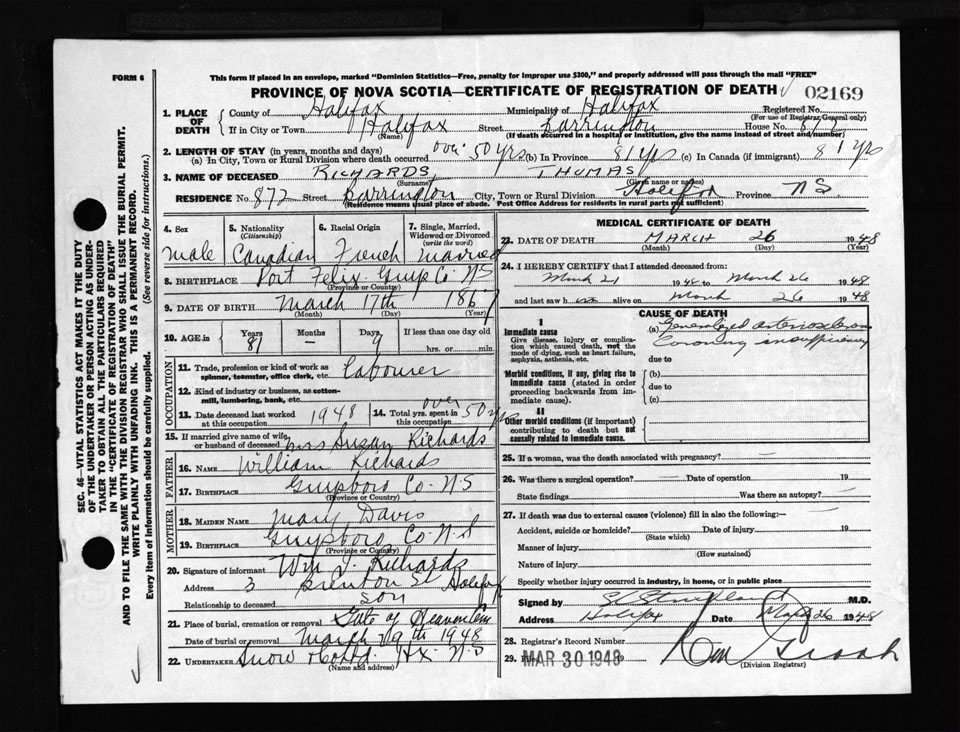 FORM 6
This form if placed in an envelope, marked "Dominion Statistics—Free, penalty for improper use $300," and properly addressed will pass through the mail "FREE"
PROVINCE OF NOVA SCOTIA—CERTIFICATE OF REGISTRATION OF DEATH
02169
1. PLACE OF DEATH
County of Halifax Municipality of Halifax Registered No.
(For use of Registrar General only)
If in City or Town Halifax Street Barrington House No.
(Name) (If death occurred in a hospital or institution, give the name instead of street and number)
2. LENGTH OF STAY (in years, months and days)
(a) In City, Town or Rural Division where death occurred over 50 yrs (b) In Province 81 yrs (c) In Canada (if immigrant) 81 yrs
3. NAME OF DECEASED RICHARDS THOMAS
(Surname) (Given name or names)
RESIDENCE No 872 Street Barrington City, Town or Rural Division Halifax Province N S
(Residence means usual place of abode. Post Office Address for residents in rural parts not sufficient)
4. Sex
male
5. Nationality
(Citizenship)
Canadian
6. Racial Origin
French
7. Single, Married, Widowed or Divorced
(write the word)
married
8. BIRTHPLACE Port Felix Guys Co. N S
(Province or Country)
9. DATE OF BIRTH March 17th 1867
(Month) (Day) (Year)
10. AGE in
Years Months Days If less than one day old
81 — 9 hrs. or min.
OCCUPATION
11. Trade, profession or kind of work as spinner, teamster, office clerk, etc. labourer
12. Kind of industry or business, as cotton-mill, lumbering, bank, etc.
13. Date deceased last worked at this occupation 1948
14. Total yrs. spent in this occupation over 50 yrs
15. If married give name of wife or husband of deceased Mrs Suzan Richards
FATHER
16. NAME William Richards
17. BIRTHPLACE Guysboro Co. N S
(Province or Country)
MOTHER
18. MAIDEN NAME Mary Davis
19. BIRTHPLACE Guysboro Co. N S
(Province or Country)
20. Signature of informant Wm J. Richards
Address 3 Brenton St Halifax
Relationship to deceased son
21. Place of burial, cremation or removal Gate of Heaven Cem
Date of burial or removal March 29th 1948
22. UNDERTAKER Snow & Co Ltd. Hx. N S
(Name and address)
MEDICAL CERTIFICATE OF DEATH
23. DATE OF DEATH MARCH 26 1948
(Month) (Day) (Year)
24. I HEREBY CERTIFY that I attended deceased from:
March 21 1948 to March 26 1948
and last saw him alive on March 26 1948
CAUSE OF DEATH
I
Immediate cause
Give disease, injury or complication which caused death, not the mode of dying, such as heart failure, asphyxia, asthenia, etc.
(a) Generalized arteriosclerosis
Coronary insufficiency
due to
Morbid conditions, if any, giving rise to immediate cause (stated in order proceeding backwards from immediate cause).
(b)
due to
(c)
II
Other morbid conditions (if important) contributing to death but not causally related to immediate cause.
25. If a woman, was the death associated with pregnancy? —
26. Was there a surgical operation? — Date of operation 19
State findings Was there an autopsy? —
27. If death was due to external causes (violence) fill in also the following:—
Accident, suicide or homicide? Date of injury 19
(State which)
Manner of injury
(How sustained)
Nature of injury
Specify whether injury occurred in industry, in home, or in public place
Signed by M.D.
Address Halifax Date Mar 26 1948
28. Registrar's Record Number
29. MAR 30 1948
(Division Registrar)
SEC. 46—VITAL STATISTICS ACT MAKES IT THE DUTY
OF THE UNDERTAKER OR PERSON ACTING AS UNDERTAKER TO OBTAIN ALL THE PARTICULARS REQUIRED
IN THE "CERTIFICATE OF REGISTRATION OF DEATH"
AND TO FILE THE SAME WITH THE DIVISION REGISTRAR WHO SHALL ISSUE THE BURIAL PERMIT.
WRITE PLAINLY WITH UNFADING INK. THIS IS A PERMANENT RECORD.
Every item of information should be carefully supplied. (See reverse side for instructions.)